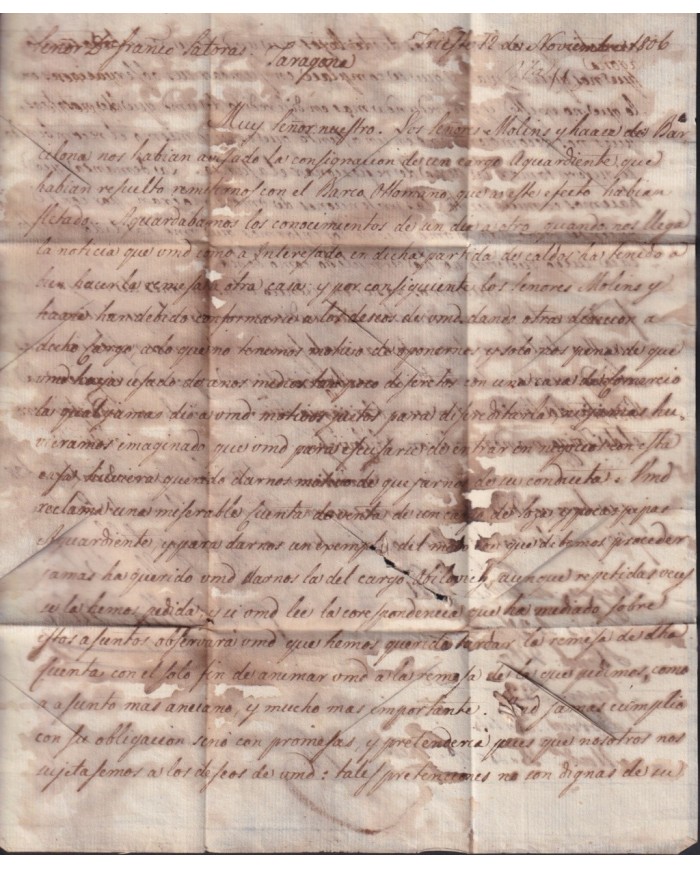 Señor Dn franco Satoras. Trieste 12 de Noviembre 1806
Taragona
Muy Señor nuestro. Los Señores Molins y de Bar
celona nos habian avisado la consignacion de un cargo Aguardiente que
habian resuelto remeternos con el Barco Ottomano que a este efecto habian
fletado. Aguardabamos los conocimientos de un dia a otro, quando nos llega
la noticia que vmd como a Interesado en dicha partida de caldos ha tenido a
bien hacer la remesa a otra casa y por consiguiente los Señores Molins y
han debido conformarse a los deseos de vmd dando otra direccion a
dicho Cargo, a lo que no tenemos motivo de oponernos y solo nos pena de que
vmd haya usado de unos medios tan poco discretos con una casa de Comercio
la qual jamas dio a vmd motivos justos para disgreditarla, y jamas hu-
vieramos imaginado que vmd para escusarse de entrar en negocios con esta
casa huviera querido darnos motivo de quexarnos de su conducta. Vmd
reclama una miserable Cuenta de venta de un y poco pipas
Aguardiente, y para darnos un exemplo del modo con que debemos proceder
jamas ha querido vmd darnos la del cargo aunque repetidas veces
se la hemos pedida, y si vmd lee la correspondencia que ha mediado sobre
estos asuntos observará vmd que hemos querido tardar la remesa de dha
Cuenta con el solo fin de animar vmd a la remesa de lo que pedimos, como
a asunto mas anciano, y mucho mas importante. Vmd jamas cumplio
con su obligacion sinó con promesas, y pretenderia pues que nosotros nos
sujetasemos a los deseos de vmd: tales pretenciones no son dignas de su